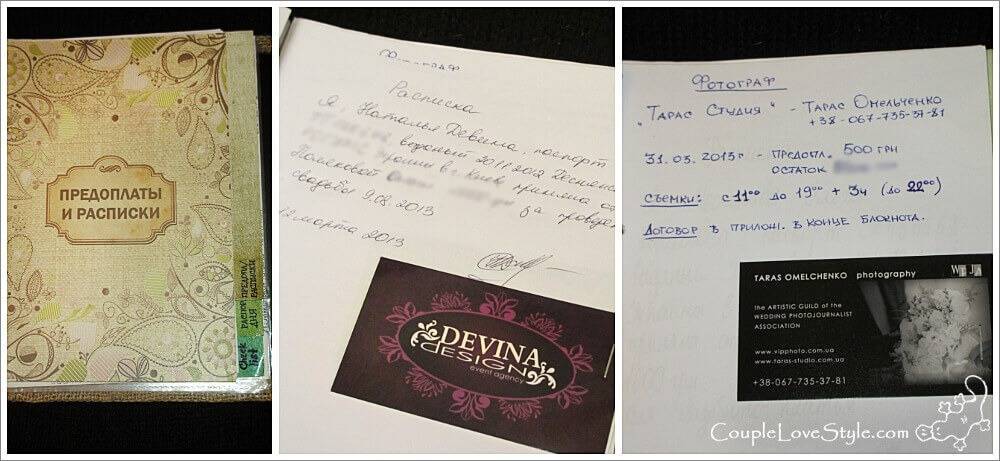 ПРЕДОПЛАТЫ
И РАСПИСКИ
ПРЕДОПЛ/
РАСПИСКИ
РАСПОР
ДНЯ
Check
list
Расписка
Я, Наталья Девина, паспорт
2011.2012
г. Киев приняла
Поляковой
за проведен
свадьбы 9.08.2013
12 марта 2013
DEVINA
DESIGN
event agency
Фотограф
"Тарас Студия" - Тарас Омельченко
+38-067-735-37-81
31.03.2013г - предопл. 500 грн
остаток
Съемки: с 11⁰⁰ до 19⁰⁰ + 3ч (до 22⁰⁰)
Договор в прилож. в конце блокнота.
TARAS OMELCHENKO photography
the ARTISTIC GUILD of the
WEDDING PHOTOJOURNALIST
ASSOCIATION
www.vipphoto.com.ua
www.taras-studio.com.ua
+38-067-735-37-81
CoupleLoveStyle.com